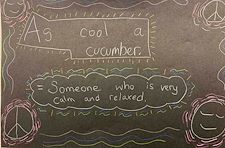 As cool a
cucumber.
= Someone who is very
calm and relaxed.